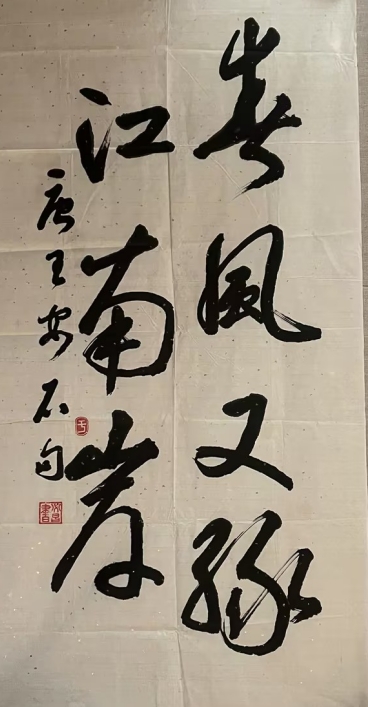 春風又綠
江南岸
唐王安石句